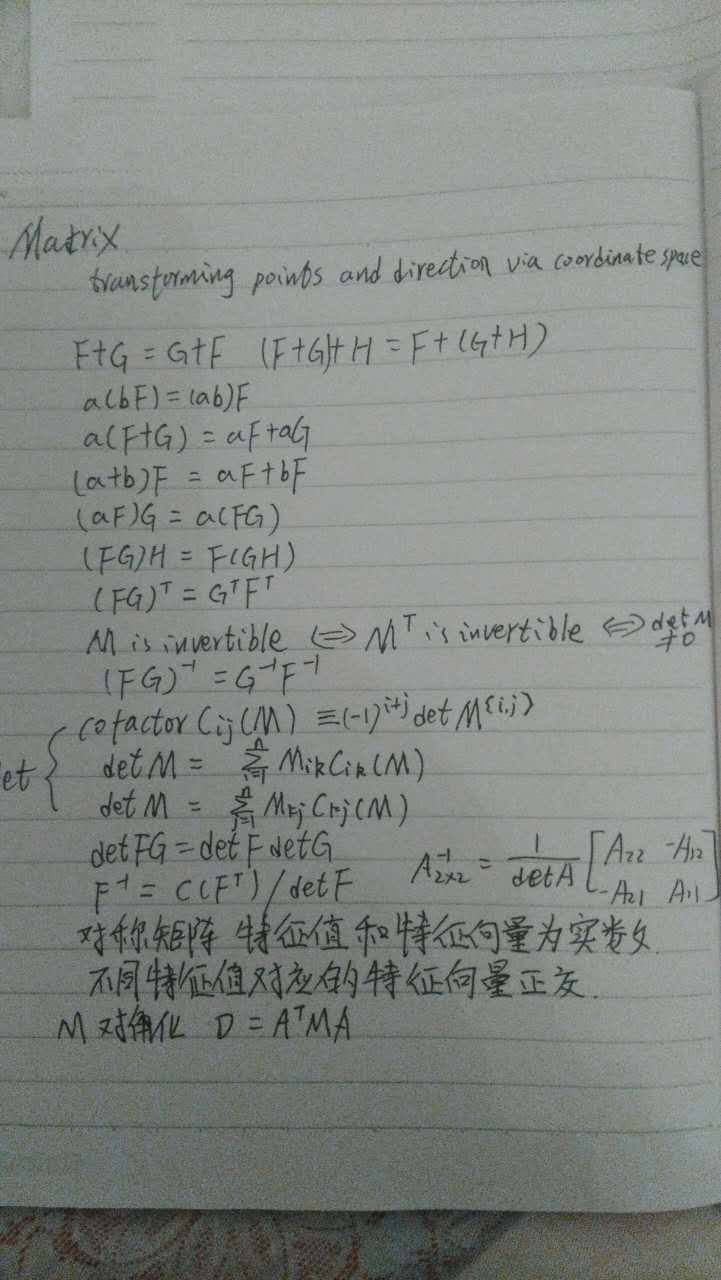 Matrix
transforming points and direction via coordinate space
F+G = G+F (F+G)+H = F+(G+H)
a(bF) = (ab)F
a(F+G) = aF+aG
(a+b)F = aF+bF
(aF)G = a(FG)
(FG)H = F(GH)
(FG)ᵀ = GᵀFᵀ
M is invertible ⟺ Mᵀ is invertible ⟺ det M ≠0
(FG)⁻¹ = G⁻¹F⁻¹
cofactor Cij(M) ≡ (-1)^{i+j} det M^{{i,j}}
et { det M = Σ_{i=1}^{n} Mik Cik(M)
det M = Σ_{j=1}^{n} Mkj Ckj(M)
det FG = det F det G
F⁻¹ = C(Fᵀ)/det F A⁻¹_{2×2} = 1/detA [A22 -A12; -A21 A11]
对称矩阵 特征值和特征向量为实数
不同特征值对应的特征向量正交.
M 对角化 D = AᵀMA